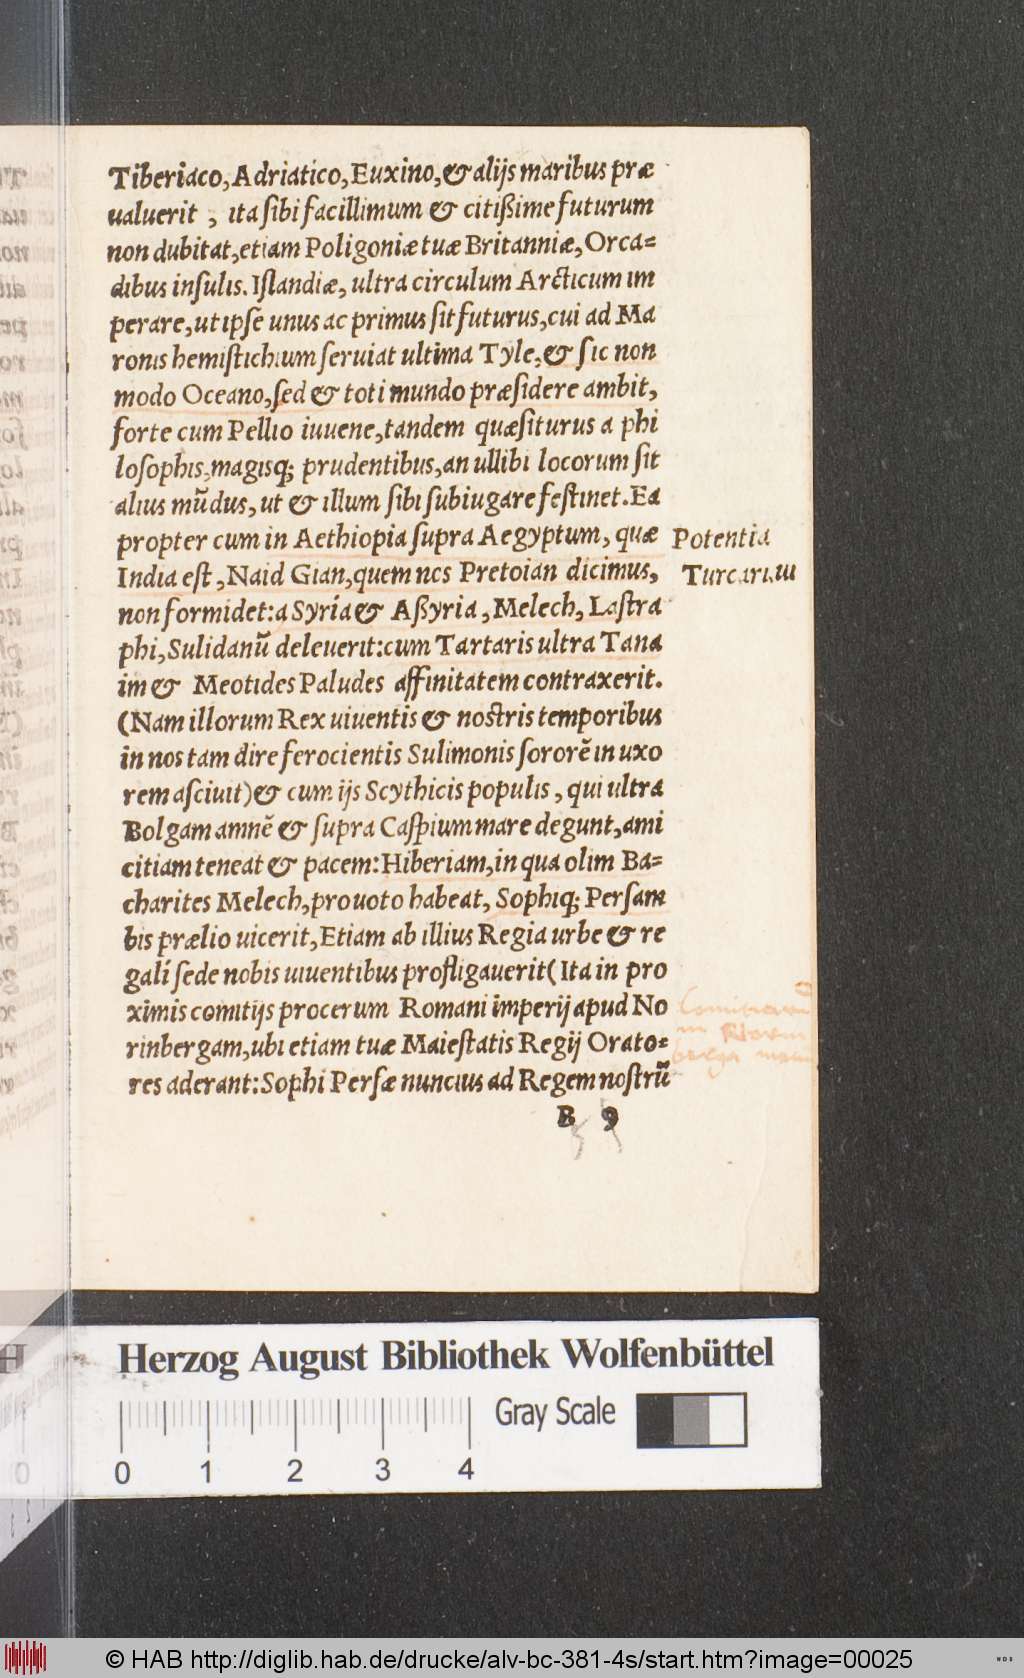 Tiberiaco, Adriatico, Euxino, & alijs maribus præ
ualuerit , ita sibi facillimum & citißime futurum
non dubitat, etiam Poligoniæ tuæ Britanniæ, Orca=
dibus insulis. Islandiæ, ultra circulum Arcticum im
perare, ut ipse unus ac primus sit futurus, cui ad Ma
ronis hemistichium seruiat ultima Tyle, & sic non
modo Oceano, sed & toti mundo præsidere ambit,
forte cum Pellio iuuene, tandem quæsiturus a phi
losophis, magisq; prudentibus, an ullibi locorum sit
alius mūdus, ut & illum sibi subiugare festinet. Ea
propter cum in Aethiopia supra Aegyptum, quæ
India est, Naid Gian, quem nos Pretoian dicimus,
non formidet: a Syria & Aßyria, Melech, Lastra
phi, Sulidanū deleuerit: cum Tartaris ultra Tana
im & Meotides Paludes affinitatem contraxerit.
(Nam illorum Rex uiuentis & nostris temporibus
in nos tam dire ferocientis Sulimonis sororē in uxo
rem asciuit) & cum ijs Scythicis populis, qui ultra
Bolgam amnē & supra Caspium mare degunt, ami
citiam teneat & pacem: Hiberiam, in qua olim Ba=
charites Melech, pro uoto habeat, Sophiq; Persam
bis prælio uicerit, Etiam ab illius Regia urbe & re
gali sede nobis uiuentibus profligauerit (Ita in pro
ximis comitijs procerum Romani imperij apud No
rinbergam, ubi etiam tuæ Maiestatis Regij Orato=
res aderant: Sophi Persæ nuncius ad Regem nostrū
B 9
Potentia
Turcarum
Herzog August Bibliothek Wolfenbüttel
Gray Scale
0 1 2 3 4
© HAB http://diglib.hab.de/drucke/alv-bc-381-4s/start.htm?image=00025